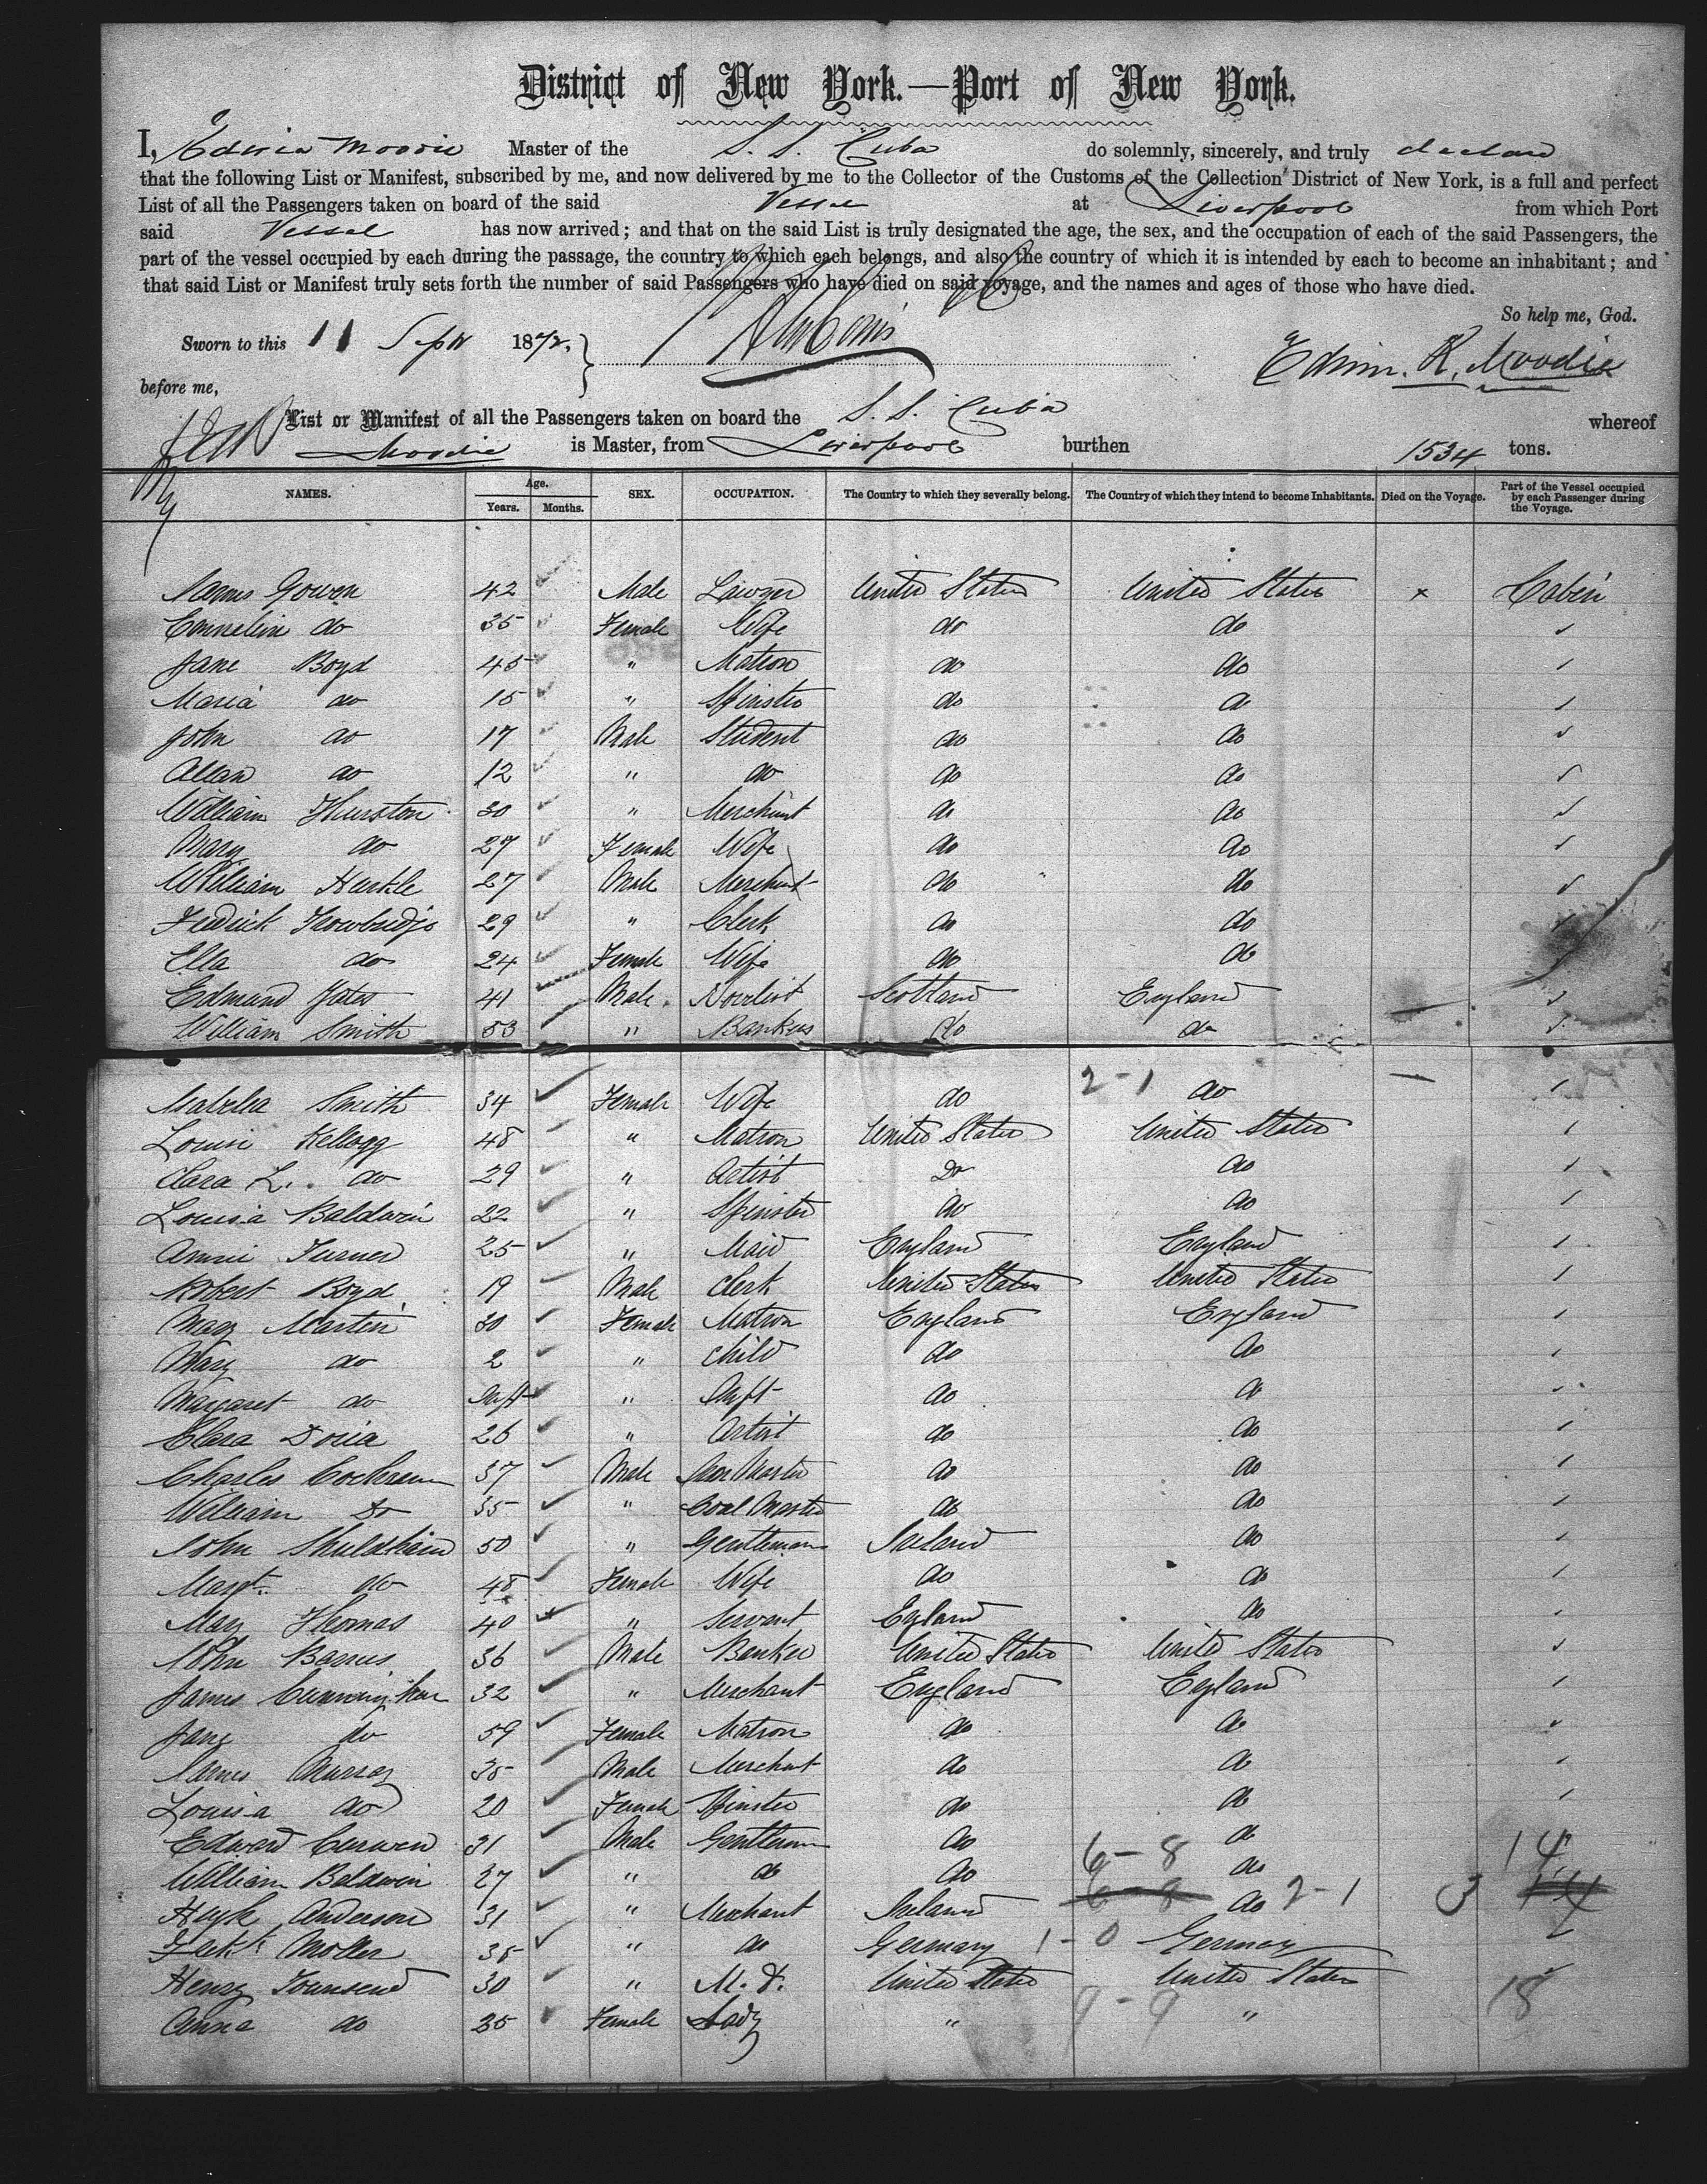 District of New York.—Port of New York.
I, Edwin Moodie Master of the S. S. Cuba do solemnly, sincerely, and truly declare
that the following List or Manifest, subscribed by me, and now delivered by me to the Collector of the Customs of the Collection District of New York, is a full and perfect
List of all the Passengers taken on board of the said Vessel at Liverpool from which Port
said Vessel has now arrived; and that on the said List is truly designated the age, the sex, and the occupation of each of the said Passengers, the
part of the vessel occupied by each during the passage, the country to which each belongs, and also the country of which it is intended by each to become an inhabitant; and
that said List or Manifest truly sets forth the number of said Passengers who have died on said voyage, and the names and ages of those who have died.
So help me, God.
Sworn to this 11 Sept 1872. Edwin. R. Moodie
before me,
List or Manifest of all the Passengers taken on board the S. S. Cuba whereof
Moodie is Master, from Liverpool burthen 1534 tons.
NAMES. Age. Years. Months. SEX. OCCUPATION. The Country to which they severally belong. The Country of which they intend to become Inhabitants. Died on the Voyage. Part of the Vessel occupied by each Passenger during the Voyage.
James Gowen 42 Male Lawyer United States United States x Cabin
do 35 Female Wife do do
Jane Boyd 45 " Matron do do
Maria do 15 " Spinster do do
John do 17 Male Student do do
Allan do 12 " do do do
William Thurston 30 " Merchant do do
Mary do 27 Female Wife do do
William Harkle 27 Male Merchant do do
Fedrick Trowbridge 29 " Clerk do do
Ella do 24 Female Wife do do
Edmund Yates 41 Male Novelist Scotland England
William Smith 53 " Bankers do do
Isabella Smith 34 Female Wife do 2-1 do
Louisi Kellogg 48 " Matron United States United States
Clara L. do 29 " Artist Do do
Louisa Baldwin 22 " Spinster do do
Annie Turner 25 " Maid England England
Robert Boyd 19 Male Clerk United States United States
Mary Martin 30 Female Matron England England
Mary do 2 " Child do do
Margaret do Inft " Inft do do
Clara Doria 26 " Artist do do
Charles Cochrane 37 Male Iron Master do do
William Do 35 " Coal Master do do
John Shuldham 50 " Gentleman Ireland do
Margt. do 48 Female Wife do do
Mary Thomas 40 " Servant England do
John Barnes 36 Male Banker United States United States
James Cunningham 32 " Merchant England England
Jane do 59 Female Matron do do
James Murray 35 Male Merchant do do
Louisa do 20 Female Spinster do do
Edward Curwen 31 Male Gentleman do do
William Baldwin 27 " do do 6-8 do 14
Hugh Anderson 31 " Merchant Ireland do 2-1 3
Moller 35 " do Germany 1-0 Germany
Henry Townsend 30 " M.D. United States United States
Anna do 25 Female Lady " 9-9 " 18